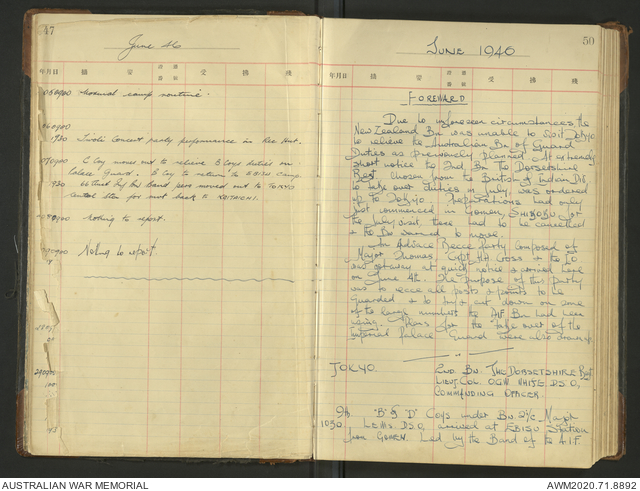 47
June 46
年月日 摘 要 受 拂 残
050900 Normal camp routine.
060900
1930 Tivoli Concert party performance in Rec Hut.
070900 C Coy moves out to relieve B Coys duties on
Palace Guard. B Coy to return to EBISU Camp.
1930 66 Inf Bde Band pers moved out to TOKYO
Central Stn for mvt back to KAITAICHI.
080900 Nothing to report.
090900 Nothing to report.
50
JUNE 1946
年月日 摘 要 受 拂 残
FOREWARD
Due to unforeseen circumstances, the
New Zealand Bn was unable to visit Tokyo
to relieve the Australian Bn of Guard
Duties as previously planned. At extremely
short notice 2nd Bn The Dorsetshire
Regt chosen from the British & Indian Div
to take over duties in July, was ordered
up to Tokyo. Preparations had only
just commenced in Gomen, SHIKOKU for
the July visit, these had to be cancelled
& the Bn warned to move.
An Advance Recce party composed of
Major Thomas, Capt Cross & the I.O
was got away at quick notice & arrived here
on June 4th. The purpose of this party
was to recce all posts & points to be
guarded & to try & cut down on some
of the large numbers the AIF Bn had been
using. Plans for the take over of the
Imperial Palace Guard were also drawn up
TOKYO. 2nd. Bn. The DORSETSHIRE Regt
LIEUT. COL. OGW WHITE D.S.O,
COMMANDING OFFICER.
9th 'B' & 'D' Coys under Bn. 2i/c Major
1030. LEWIS D.S.O, arrived at EBISU Station
from GOMEN. Led by the Band of the A.I.F
AUSTRALIAN WAR MEMORIAL
AWM2020.71.8892